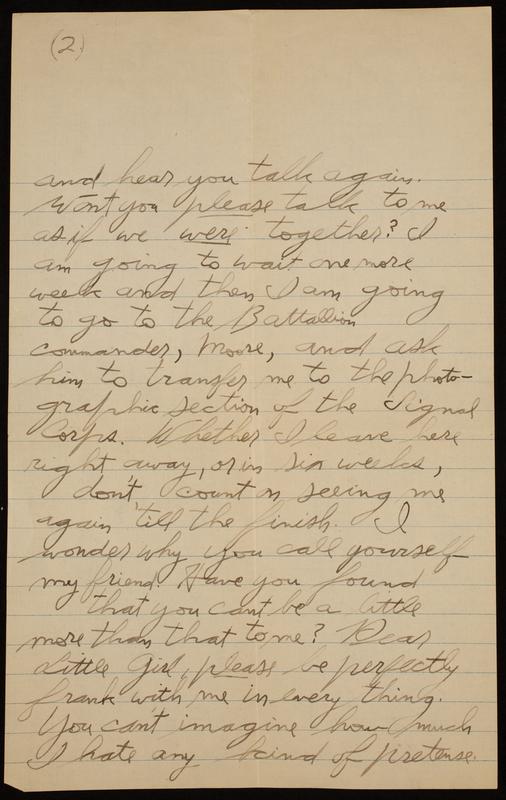 (2)
and hear you talk again.
Wont you please talk to me
as if we were together? I
am going to wait one more
week and then I am going
to go to the Battallion
commander, Moore, and ask
him to transfer me to the photo-
graphic section of the Signal
Corps. Whether I leave here
right away, or in six weeks,
don't count on seeing me
again 'till the finish. I
wonder why you call yourself
my friend. Have you found
that you cant be a little
more than that to me? Dear
Little Girl, please be perfectly
frank with me in every thing.
You can't imagine how much
I hate any kind of pretense.